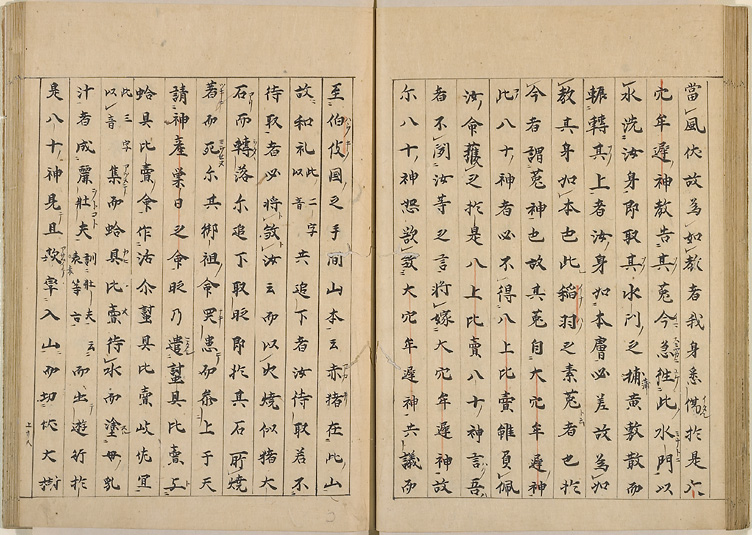 當風伏故為如教者我身悉傷於是大
穴牟遲神教告其菟今急往此水門以
水洗汝身即取其水門之蒲黄敷散而
輾轉其上者汝身如本膚必差故為如
教其身如本也此稻羽之素菟者也於
今者謂菟神也故其菟白大穴牟遲神
此八十神者必不得八上比賣雖負佩
汝命獲之於是八上比賣八十神言吾
者不聞汝等之言將嫁大穴牟遲神故
尓八十神怒欲殺大穴牟遲神共議而
至伯伎國之手間山本云赤猪在此山
故和礼此二字以音共追下者汝待取若不
待取者必將殺汝云而以火燒似猪大
石而轉落尓追下取時即於其石所燒
著而死尓其御祖命哭患而參上于天
請神產巢日之命時乃遣蟚貝比賣与
蛤貝比賣令作活尓蟚貝比賣岐佐宜
此三字以音集而蛤貝比賣待水而塗母乳
汁者成麗壯夫訓壯夫云袁等古而出遊行於
是八十神見且欺率入山而切伏大樹